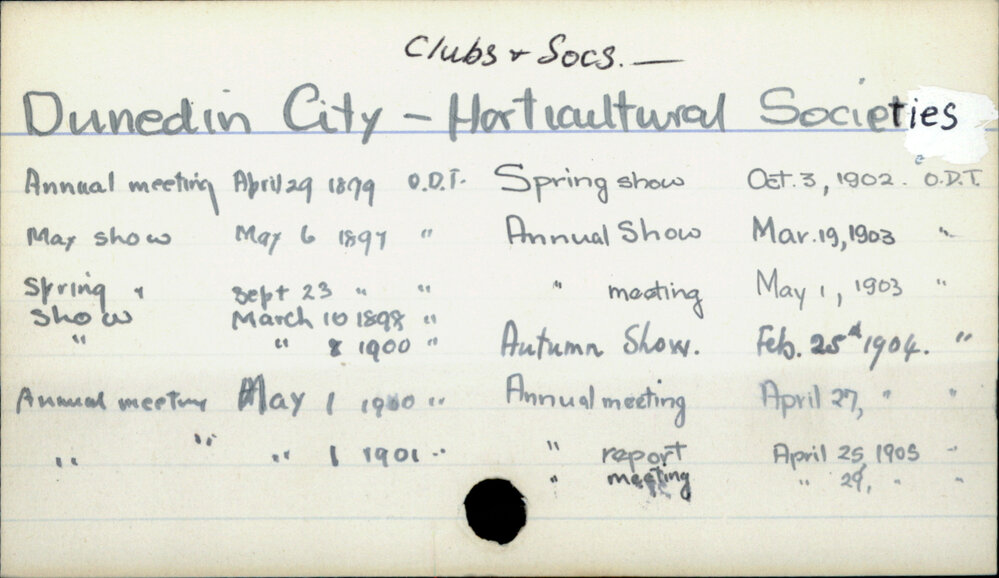 Clubs & Socs. —
Dunedin City - Horticultural Societies
Annual meeting April 29 1899 O.D.T.
May show May 6 1897 "
Spring " Sept 23 " "
Show March 10 1898 "
" " 8 1900 "
Annual meeting May 1 1900 "
" " " 1 1901 "
Spring show Oct. 3, 1902. O.D.T.
Annual Show Mar. 19, 1903 "
" meeting May 1, 1903 "
Autumn Show. Feb. 25th 1904. "
Annual meeting April 27, " "
" report April 25, 1905 "
" meeting " 29, " "